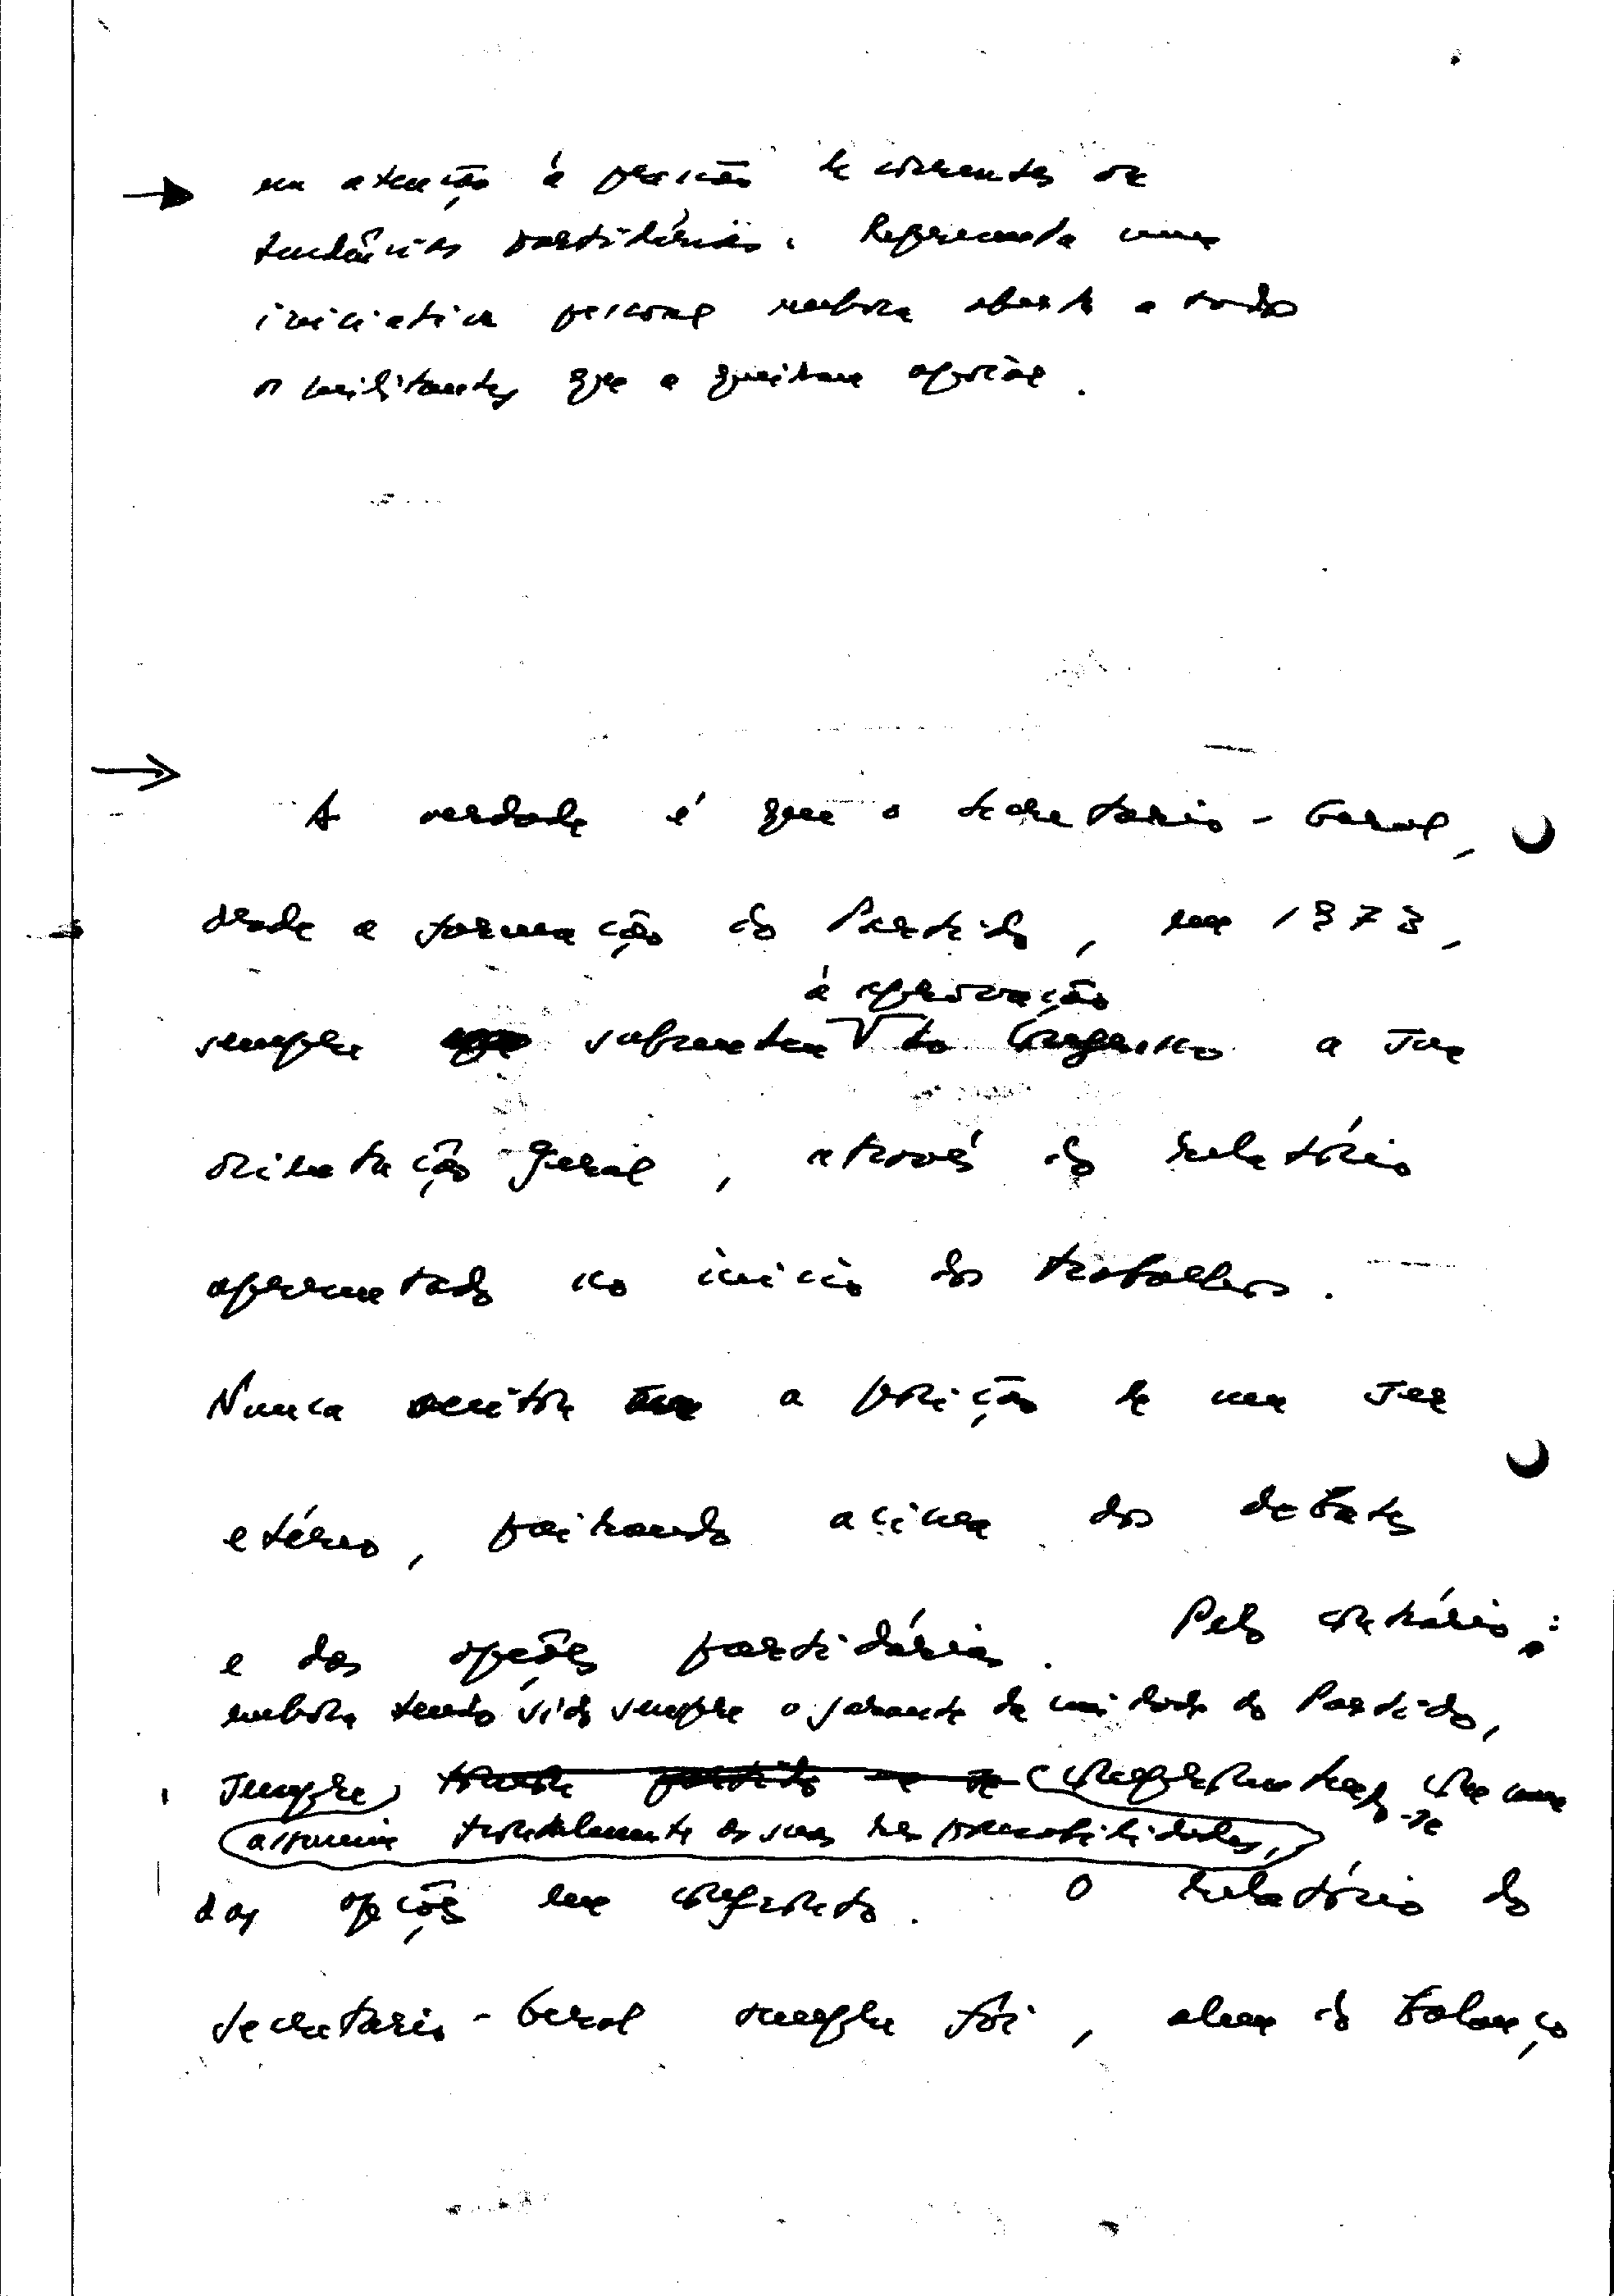 em atenção à posição de correntes ou
tendências partidárias. Representa uma
iniciativa pessoal embora aberta a todos
os militantes que a queiram apoiar.
A verdade é que o Secretário-Geral,
desde a formação do Partido, em 1973,
à aprovação
sempre submeteu do Congresso a sua
orientação geral, através do relatório
apresentado no início dos trabalhos.
Nunca aceitou a posição de um ser
etéreo, pairando acima dos debates
e das opções partidárias. Pelo contrário:
embora tendo sido sempre o garante da unidade do Partido,
sempre, comprometendo-se com uma
assumiu frontalmente as suas responsabilidades,
das opções em confronto. O relatório do
Secretário-Geral sempre foi, além do balanço